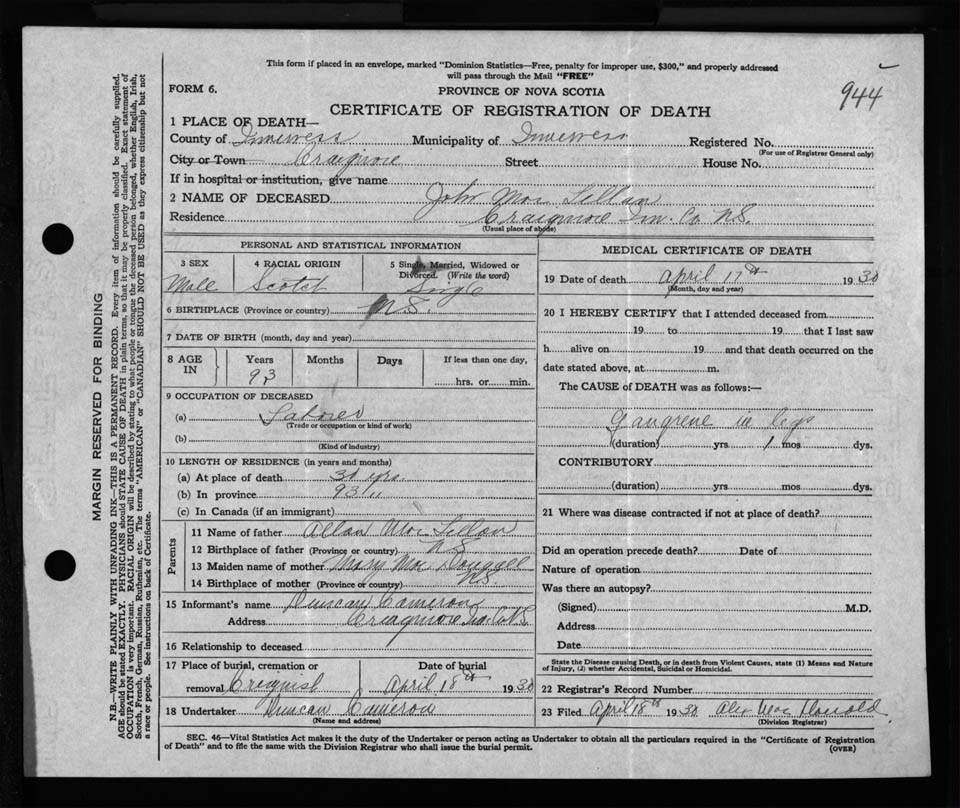 This form if placed in an envelope, marked "Dominion Statistics—Free, penalty for improper use, $300," and properly addressed
will pass through the Mail "FREE"
944
FORM 6.
PROVINCE OF NOVA SCOTIA
CERTIFICATE OF REGISTRATION OF DEATH
1 PLACE OF DEATH—
County of Inverness Municipality of Inverness Registered No.
(For use of Registrar General only)
City or Town Craigmore Street House No.
If in hospital or institution, give name
2 NAME OF DECEASED John Mac Lellan
Residence Craigmore Inv. Co. N.S.
(Usual place of abode)
PERSONAL AND STATISTICAL INFORMATION
3 SEX 4 RACIAL ORIGIN 5 Single, Married, Widowed or
Divorced. (Write the word)
Male Scotch Single
6 BIRTHPLACE (Province or country) N.S.
7 DATE OF BIRTH (month, day and year)
8 AGE IN Years Months Days If less than one day,
93 hrs. or min.
9 OCCUPATION OF DECEASED
(a) Laborer
(Trade or occupation or kind of work)
(b)
(Kind of industry)
10 LENGTH OF RESIDENCE (in years and months)
(a) At place of death 30 yrs.
(b) In province 93 "
(c) In Canada (if an immigrant)
Parents
11 Name of father Allan Mac Lellan
12 Birthplace of father (Province or country) N.S.
13 Maiden name of mother Mary Mac Dougall
14 Birthplace of mother (Province or country) N.S.
15 Informant's name Duncan Cameron
Address Craigmore Inv. Co. N.S.
16 Relationship to deceased
17 Place of burial, cremation or Date of burial
removal Creignish April 18th 1930
18 Undertaker Duncan Cameron
(Name and address)
MEDICAL CERTIFICATE OF DEATH
19 Date of death April 17th 1930
(Month, day and year)
20 I HEREBY CERTIFY that I attended deceased from
19 to 19 that I last saw
h alive on 19 and that death occurred on the
date stated above, at m.
The CAUSE of DEATH was as follows:—
Gangrene in legs
(duration) yrs 1 mos dys.
CONTRIBUTORY
(duration) yrs mos dys.
21 Where was disease contracted if not at place of death?
Did an operation precede death? Date of
Nature of operation
Was there an autopsy?
(Signed) M.D.
Address
Date
State the Disease causing Death, or in death from Violent Causes, state (1) Means and Nature
of Injury, (2) whether Accidental, Suicidal or Homicidal.
22 Registrar's Record Number
23 Filed April 18th 1930 Alex Mac Donald.
(Division Registrar)
SEC. 46—Vital Statistics Act makes it the duty of the Undertaker or person acting as Undertaker to obtain all the particulars required in the "Certificate of Registration
of Death" and to file the same with the Division Registrar who shall issue the burial permit. (OVER)
MARGIN RESERVED FOR BINDING
N.B.—WRITE PLAINLY WITH UNFADING INK—THIS IS A PERMANENT RECORD. Every item of information should be carefully supplied.
AGE should be stated EXACTLY. PHYSICIANS should STATE CAUSE OF DEATH in plain terms, so that it may be properly classified. Exact statement of
OCCUPATION is very important. RACIAL ORIGIN will be described by stating to what people or tongue the deceased person belonged, whether English, Irish,
Scotch, French, German, Russian, Ruthenian, etc. The terms "AMERICAN" or "CANADIAN" SHOULD NOT BE USED as they express citizenship but not
a race or people. See instructions on back of Certificate.